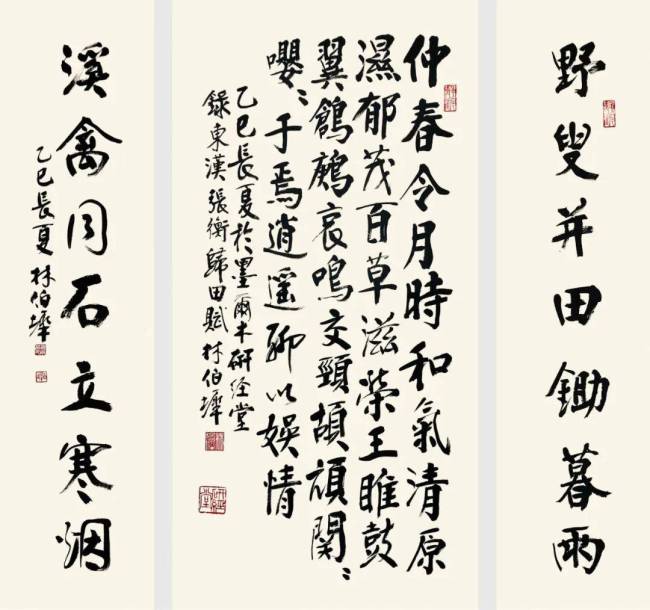 野叟并田鋤暮雨
仲春令月時和氣清原
濕郁茂百草滋榮王雎鼓
翼鶬鶊哀鳴交頸頡頏關〻
嚶〻于焉逍遥聊以娱情
乙巳長夏於墨爾本研经堂
錄東漢張衡歸田賦林伯墀
溪禽同石立寒烟
乙巳長夏林伯墀